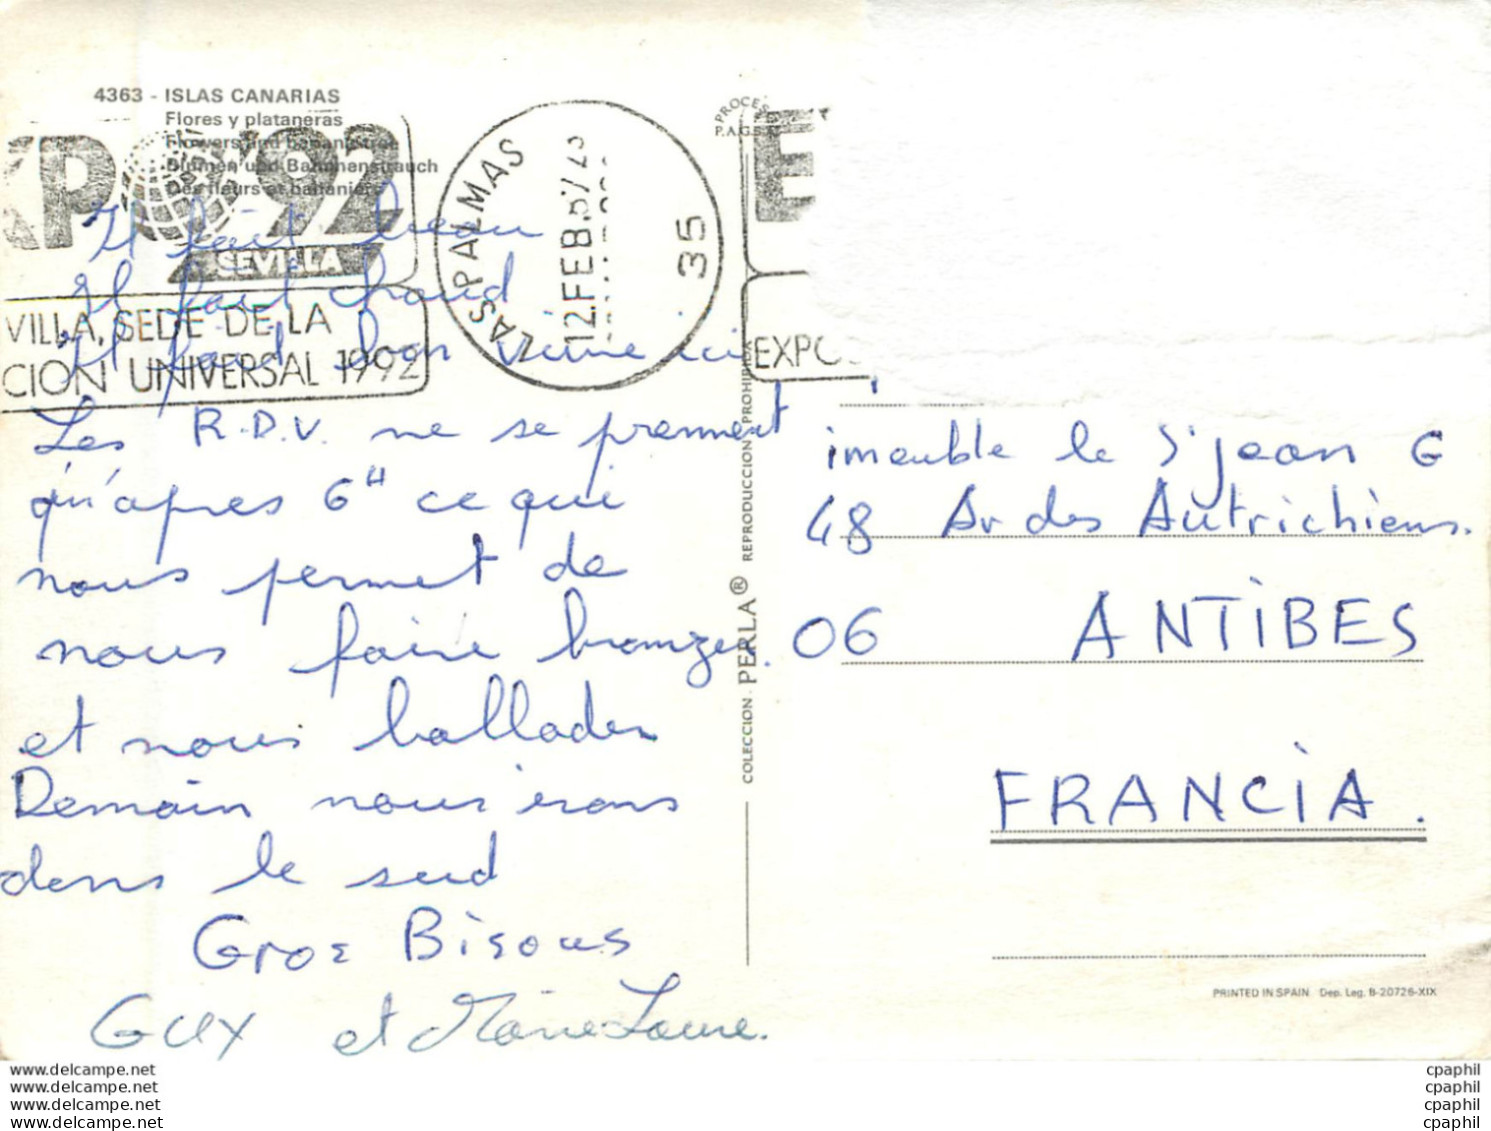 4363 - ISLAS CANARIAS
Flores y plataneras
Flowers and banana tree
Blumen und Bananenstrauch
Des fleurs et bananiers
XPO'92
SEVILLA
VILLA, SEDE DE LA
CION UNIVERSAL 1992
LAS PALMAS
12 FEB.87
35
E
EXPO
PROCES
P.A.G.S.A.
Il fait beau
Il fait chaud
Il fait bon vivre ici
Les R.D.V. ne se prennent
qu'apres 6H ce qui
nous permet de
nous faire bronzer.
et nous ballader
Demain nous irons
dans le sud
Gros Bisous
GUY et Marie Laure.
COLECCION PERLA® REPRODUCCION PROHIBIDA
imeuble le St Jean G
48 Av des Autrichiens.
06 ANTIBES
FRANCIA.
PRINTED IN SPAIN Dep. Leg. B-20726-XIX
www.delcampe.net
www.delcampe.net
www.delcampe.net
www.delcampe.net
cpaphil
cpaphil
cpaphil
cpaphil